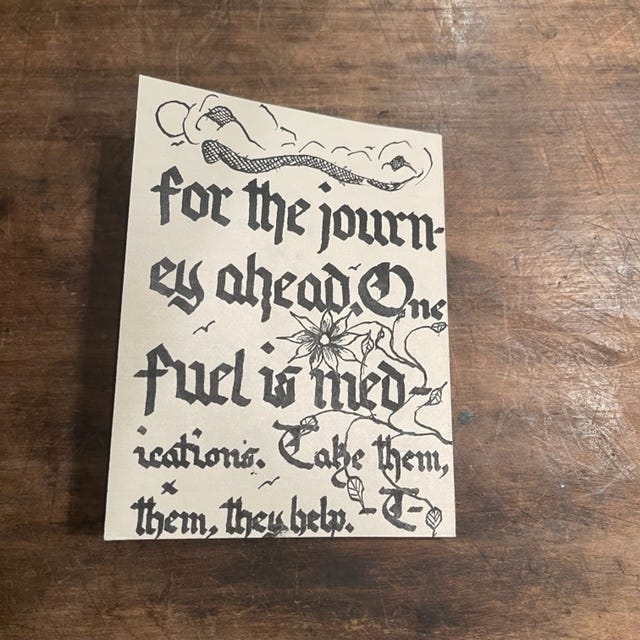 for the journ-
ey ahead. One
fuel is med-
ications. Take them,
them, they help. -T-